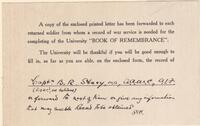 A copy of the enclosed printed letter has been forwarded to each
returned soldier from whom a record of war service is needed for the
completing of the University "BOOK OF REMEMBRANCE".
The University will be thankful if you will be good enough to
fill in, as far as you are able, on the enclosed form, the record of
Capt. B. R.
& forward to next of kin or give any information
that may enable it to be obtained